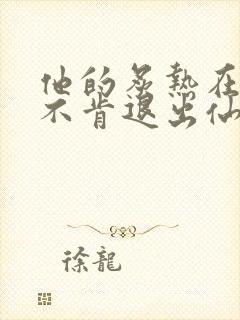 他的炙熱在
不肯退出仙
徐龍